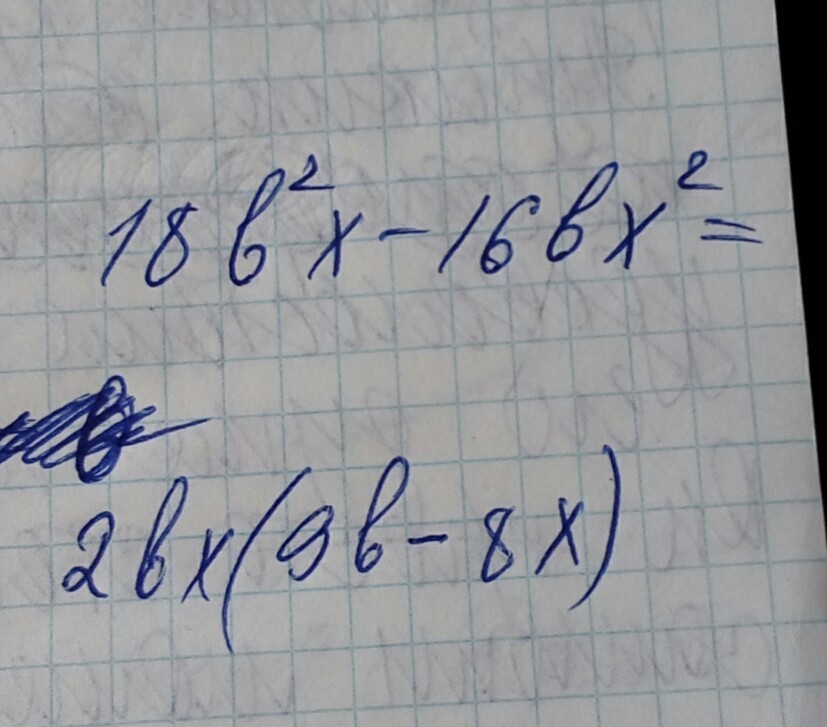 18b²x-16bx²=
2bx(9b-8x)